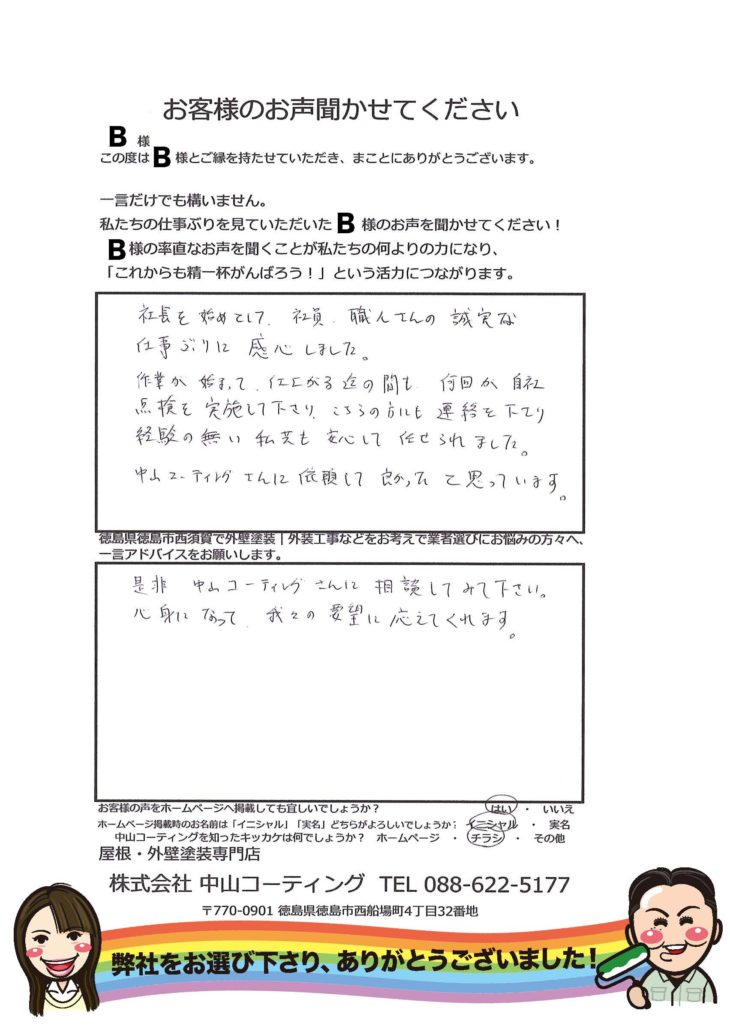 お客様のお声聞かせてください
B 様
この度は B 様とご縁を持たせていただき、まことにありがとうございます。
一言だけでも構いません。
私たちの仕事ぶりを見ていただいた B 様のお声を聞かせてください！
B 様の率直なお声を聞くことが私たちの何よりの力になり、
「これからも精一杯がんばろう！」という活力につながります。
社長を始めとして、社員、職人さんの誠実な
仕事ぶりに感心しました。
作業が始まって、仕上がる迄の間も、何回か自社
点検を実施して下さり、こちらの方にも連絡を下さり
経験の無い私共も安心して任せられました。
中山コーティングさんに依頼して良かったと思っています。
徳島県徳島市西須賀で外壁塗装｜外装工事などをお考えで業者選びにお悩みの方々へ、
一言アドバイスをお願いします。
是非 中山コーティングさんに相談してみて下さい。
心身になって、我々の要望に応えてくれます。
お客様の声をホームページへ掲載しても宜しいでしょうか？ はい ・ いいえ
ホームページ掲載時のお名前は「イニシャル」「実名」どちらがよろしいでしょうか？ イニシャル ・ 実名
中山コーティングを知ったキッカケは何でしょうか？ ホームページ ・ チラシ ・ その他
屋根・外壁塗装専門店
株式会社 中山コーティング TEL 088-622-5177
〒770-0901 徳島県徳島市西船場町4丁目32番地
弊社をお選び下さり、ありがとうございました！